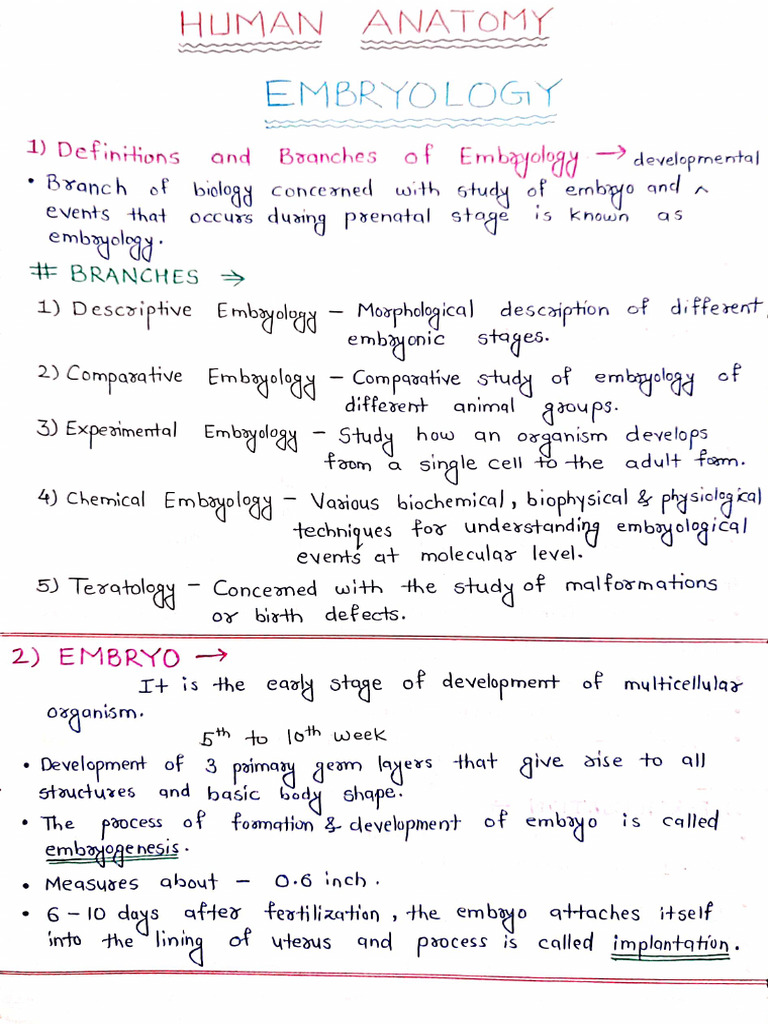 HUMAN ANATOMY
EMBRYOLOGY
1) Definitions and Branches of Embryology → developmental
• Branch of biology concerned with study of embryo and ^
events that occurs during prenatal stage is known as
embryology.
# BRANCHES →
1) Descriptive Embryology – Morphological description of different
embryonic stages.
2) Comparative Embryology – Comparative study of embryology of
different animal groups.
3) Experimental Embryology – Study how an organism develops
from a single cell to the adult form.
4) Chemical Embryology – Various biochemical, biophysical & physiological
techniques for understanding embryological
events at molecular level.
5) Teratology – Concerned with the study of malformations
or birth defects.
2) EMBRYO →
It is the early stage of development of multicellular
organism.
5th to 10th week
• Development of 3 primary germ layers that give rise to all
structures and basic body shape.
• The process of formation & development of embryo is called
embryogenesis.
• Measures about – 0.6 inch.
• 6 – 10 days after fertilization, the embryo attaches itself
into the lining of uterus and process is called implantation.